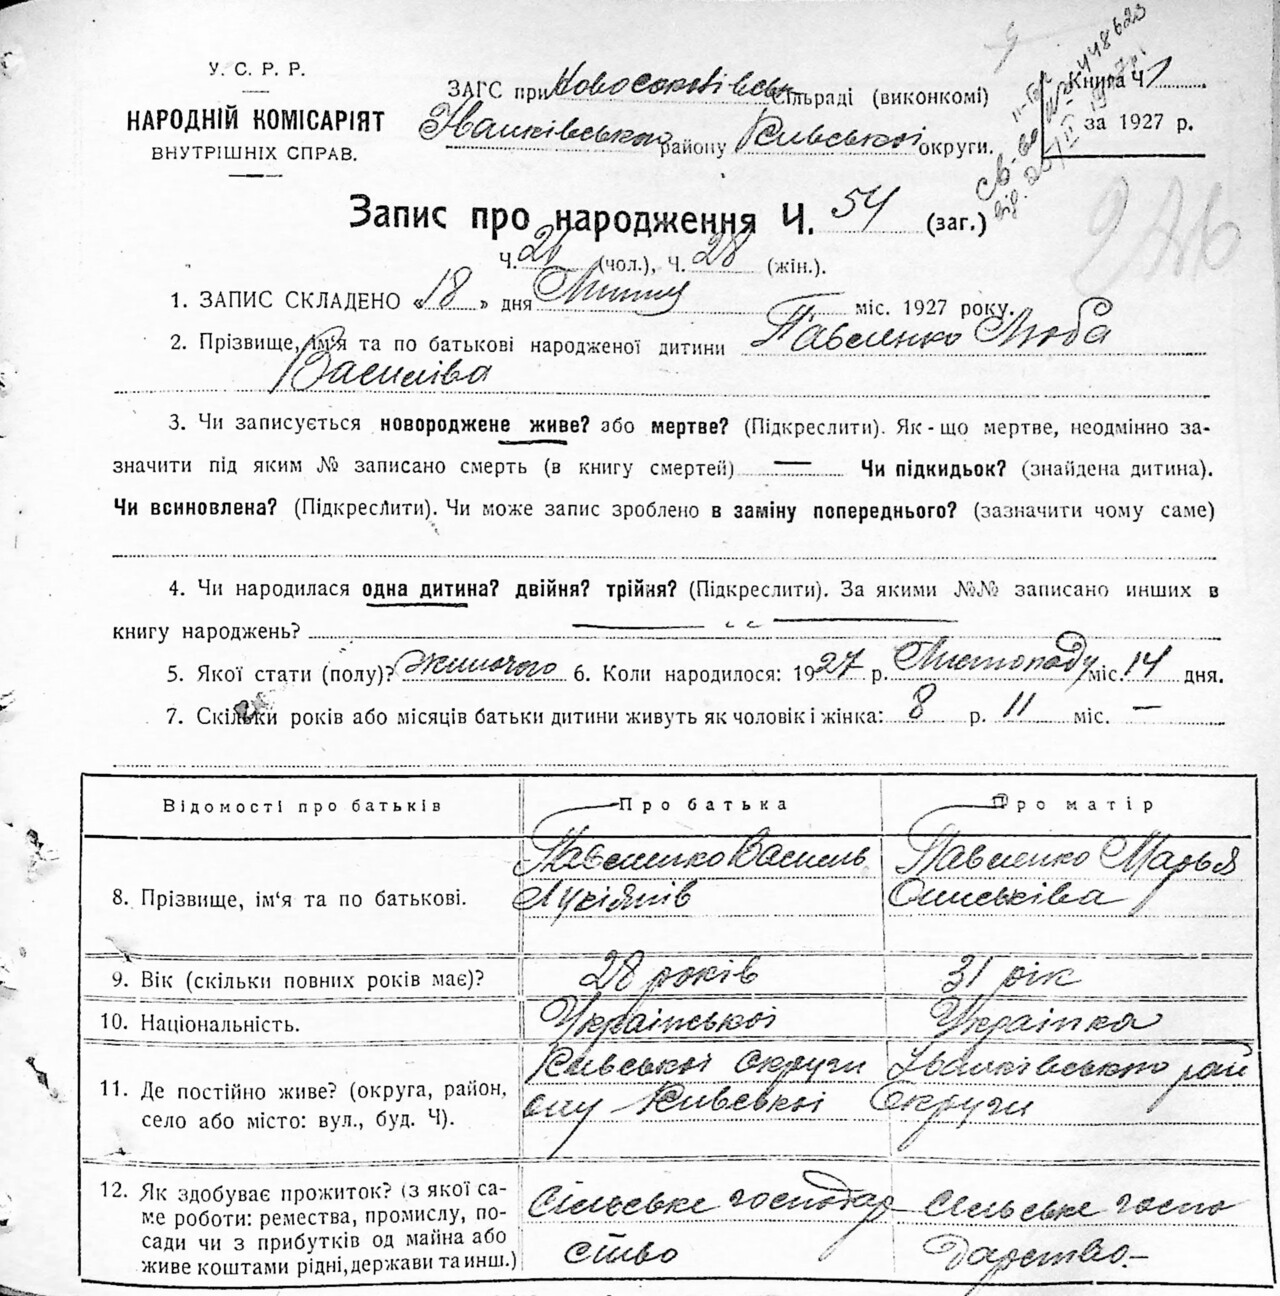 У. С. Р. Р.
НАРОДНІЙ КОМІСАРІЯТ
ВНУТРІШНІХ СПРАВ.
ЗАГС при Сільраді (виконкомі)
Іванківського району Київської округи.
Книга Ч 1
за 1927 р.
246
Запис про народження Ч. 54 (заг.)
Ч. 26 (чол.), Ч. 28 (жін.).
1. ЗАПИС СКЛАДЕНО «18» дня міс. 1927 року.
2. Прізвище, ім'я та по батькові народженої дитини Павленко Люба
Василіва
3. Чи записується новороджене живе? або мертве? (Підкреслити). Як-що мертве, неодмінно за-
значити під яким № записано смерть (в книгу смертей) — Чи підкидьок? (знайдена дитина).
Чи всиновлена? (Підкреслити). Чи може запис зроблено в заміну попереднього? (зазначити чому саме)
4. Чи народилася одна дитина? двійня? трійня? (Підкреслити). За якими №№ записано инших в
книгу народжень?
5. Якої стати (полу)? жиночого 6. Коли народилося: 1927 р. Листопаду міс. 14 дня.
7. Скільки років або місяців батьки дитини живуть як чоловік і жінка: 8 р. 11 міс. —
Відомості про батьків Про батька Про матір
8. Прізвище, ім'я та по батькові. Павленко Василь Павленко Марья
Лукіянів Ониськіва
9. Вік (скільки повних років має)? 28 років 31 рік
10. Національність. Української Українка
11. Де постійно живе? (округа, район, Київської округи Іванківського рай
село або місто: вул., буд. Ч). ону Київської Округи
12. Як здобуває прожиток? (з якої са- Сільське господар Сільське госпо
ме роботи: ремества, промислу, по-
сади чи з прибутків од майна або ство дарство.—
живе коштами рідні, держави та инш.)